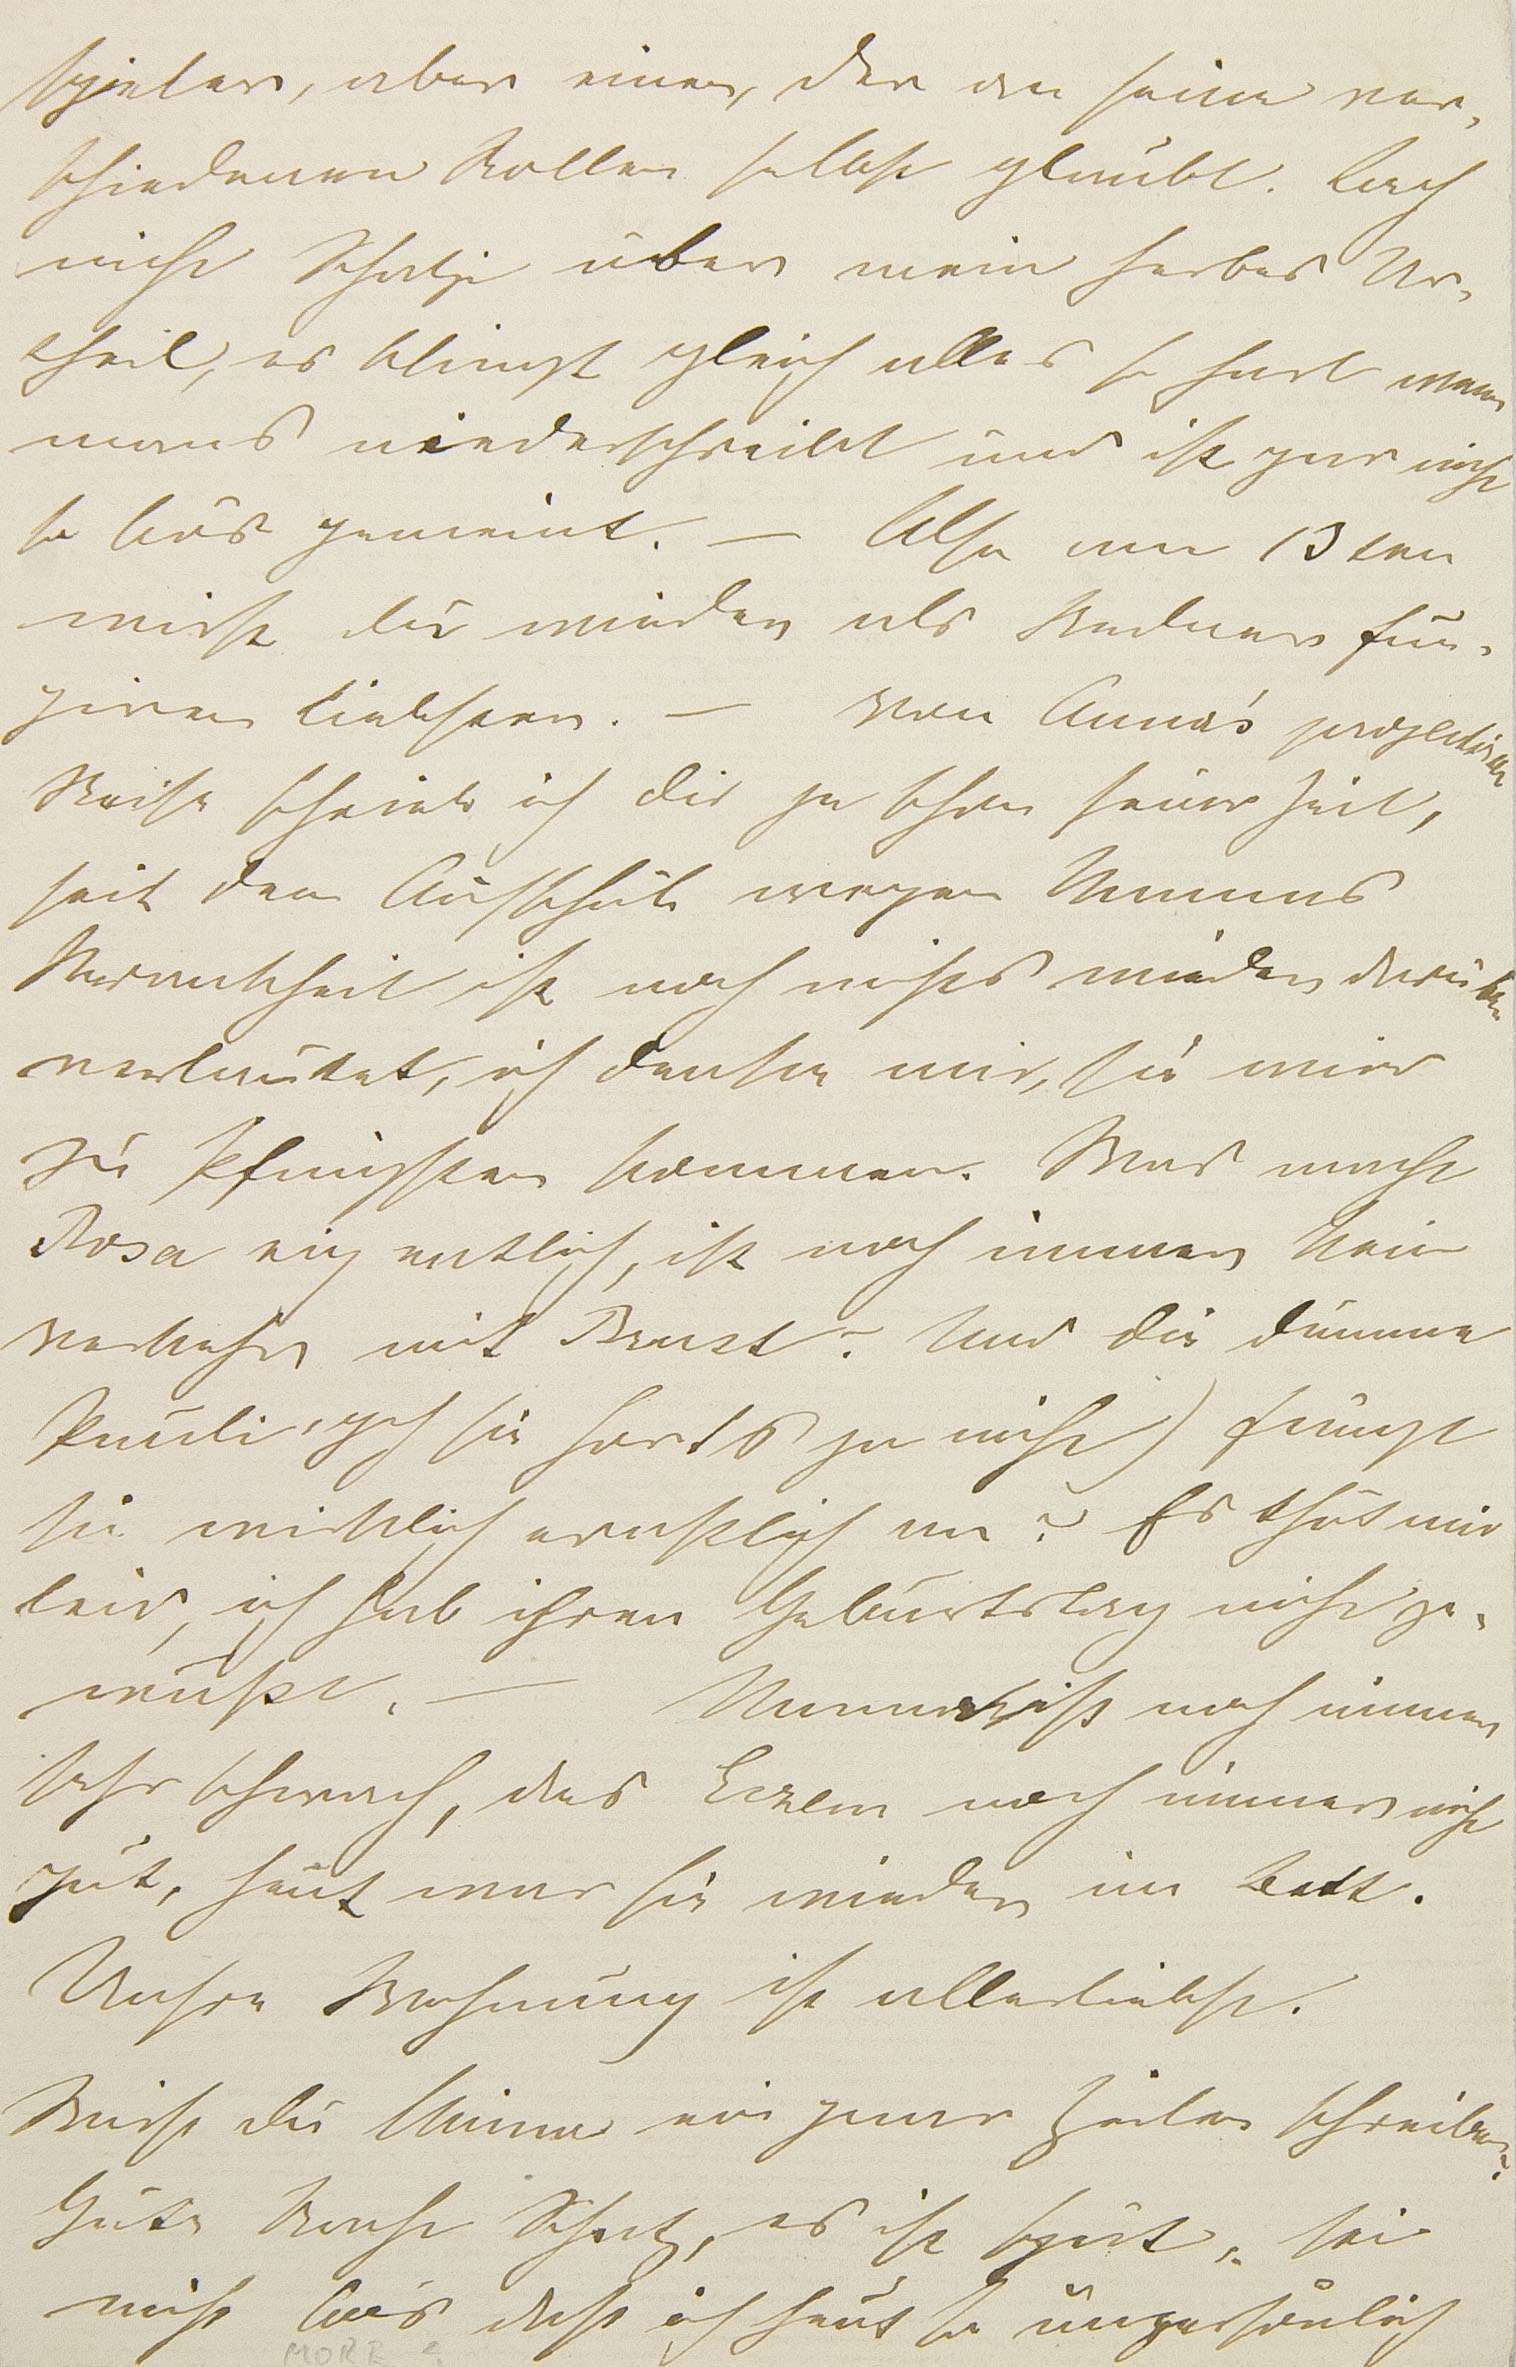 spieler, aber einer, der an seine ver-
schiedenen Rollen selbst glaubt. Lach
nicht Schatzi über mein herbes Ur-
theil, es klingt gleich alles so hart wenn
mans niederschreibt und ist gar nicht
so bös gemeint. — Also am 13ten
wirst du wieder als Redner fun-
giren Liebster. — Von Anna's projectirter
Reise schrieb ich dir ja schon seiner Zeit,
seit dem Aufschub wegen Mamas
Krankheit ist noch nichts wieder darüber
verlautet, ich denke mir, sie wird
zu Pfingsten kommen. Was macht
Rosa eigentlich, ist noch immer kein
Verkehr mit Brust? Und die dumme
Pauli, (ach sie hörts ja nicht) fängt
sie wirklich ernstlich an? Es thut mir
leid, ich hab ihren Geburtstag nicht ge-
wußt. — Mama ist noch immer
sehr schwach, das Eczem noch immer nicht
gut, heut war sie wieder im Bett.
Unsre Wohnung ist allerliebst.
Wirst du Minna ein paar Zeilen schreiben?
Gute Nacht Schatz, es ist spät, sei
nicht bös daß ich heut so unpersönlich
MORE